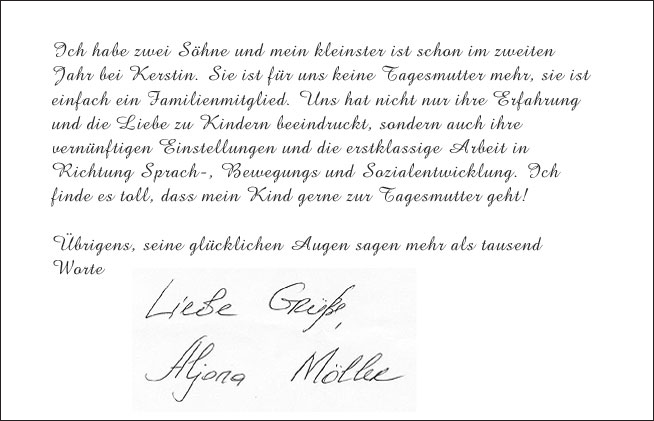 Ich habe zwei Söhne und mein kleinster ist schon im zweiten
Jahr bei Kerstin. Sie ist für uns keine Tagesmutter mehr, sie ist
einfach ein Familienmitglied. Uns hat nicht nur ihre Erfahrung
und die Liebe zu Kindern beeindruckt, sondern auch ihre
vernünftigen Einstellungen und die erstklassige Arbeit in
Richtung Sprach-, Bewegungs und Sozialentwicklung. Ich
finde es toll, dass mein Kind gerne zur Tagesmutter geht!
Übrigens, seine glücklichen Augen sagen mehr als tausend
Worte
Liebe Grüße,
Aljona Möller